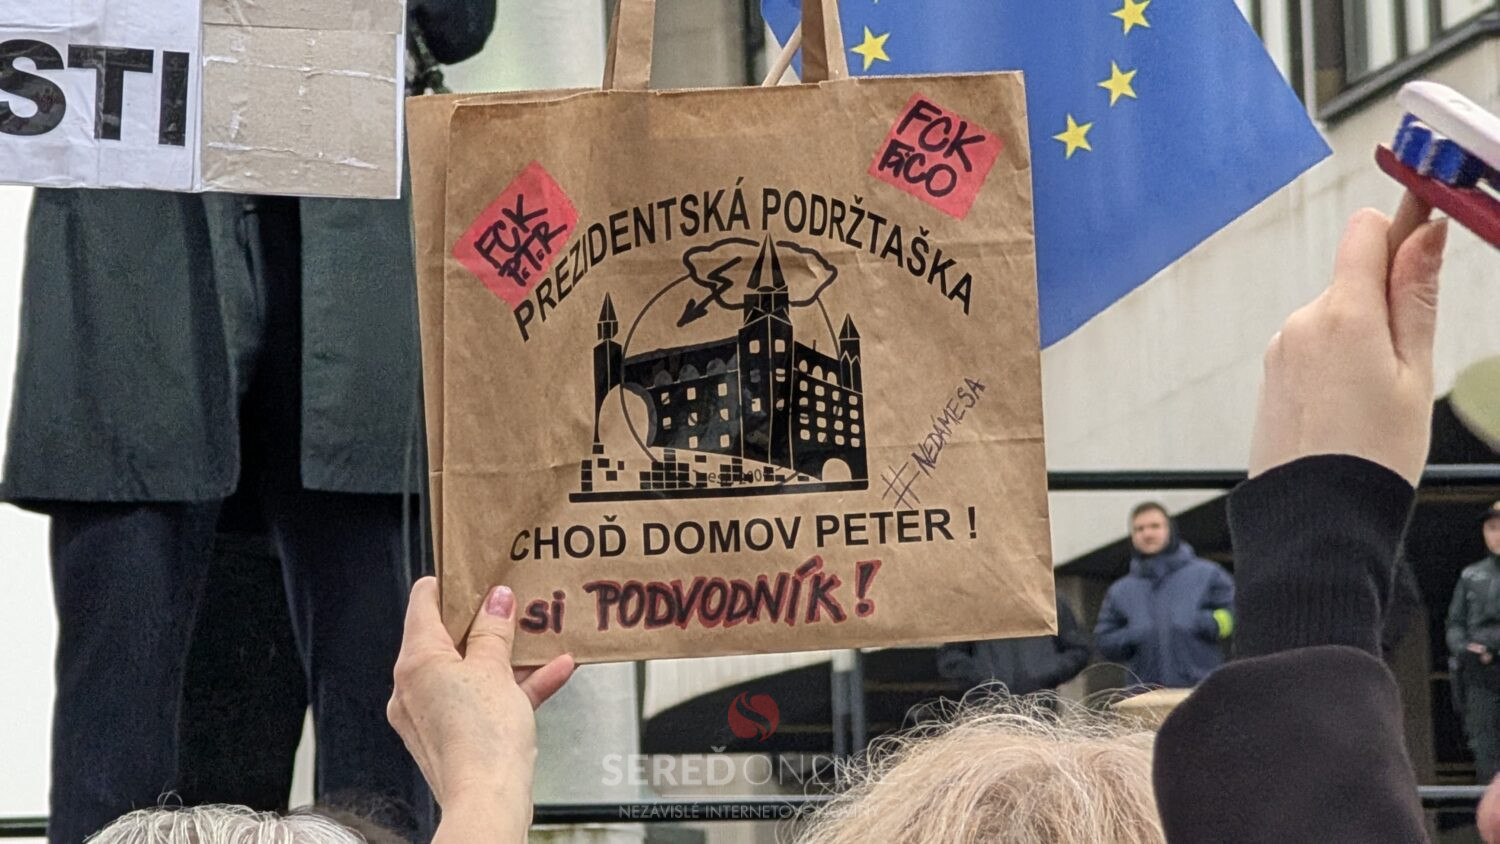 STI
FCK
FiCO
FCK
P.T.R
PREZIDENTSKÁ PODRŽTAŠKA
#NEDÁMESA
CHOĎ DOMOV PETER !
si PODVODNÍK!
SEREĎ ONLINE
NEZÁVISLÉ INTERNETOVÉ